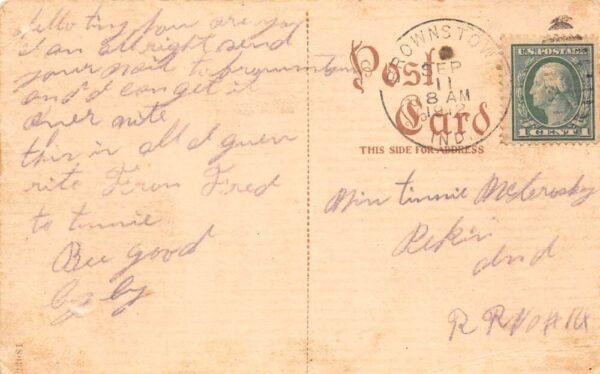 Hello tiny how are you
I am all right send
your post to brownstown
and I can get it
over note
this is all I guess
rite From Fred
to tinnie
Bee good
by by
Post
Card
THIS SIDE FOR ADDRESS
BROWNSTOWN
SEP
11
8 AM
1912
IND
U.S. POSTAGE
1 CENT 1
Miss tinnie McCrosky
Pekin
Ind
R R No